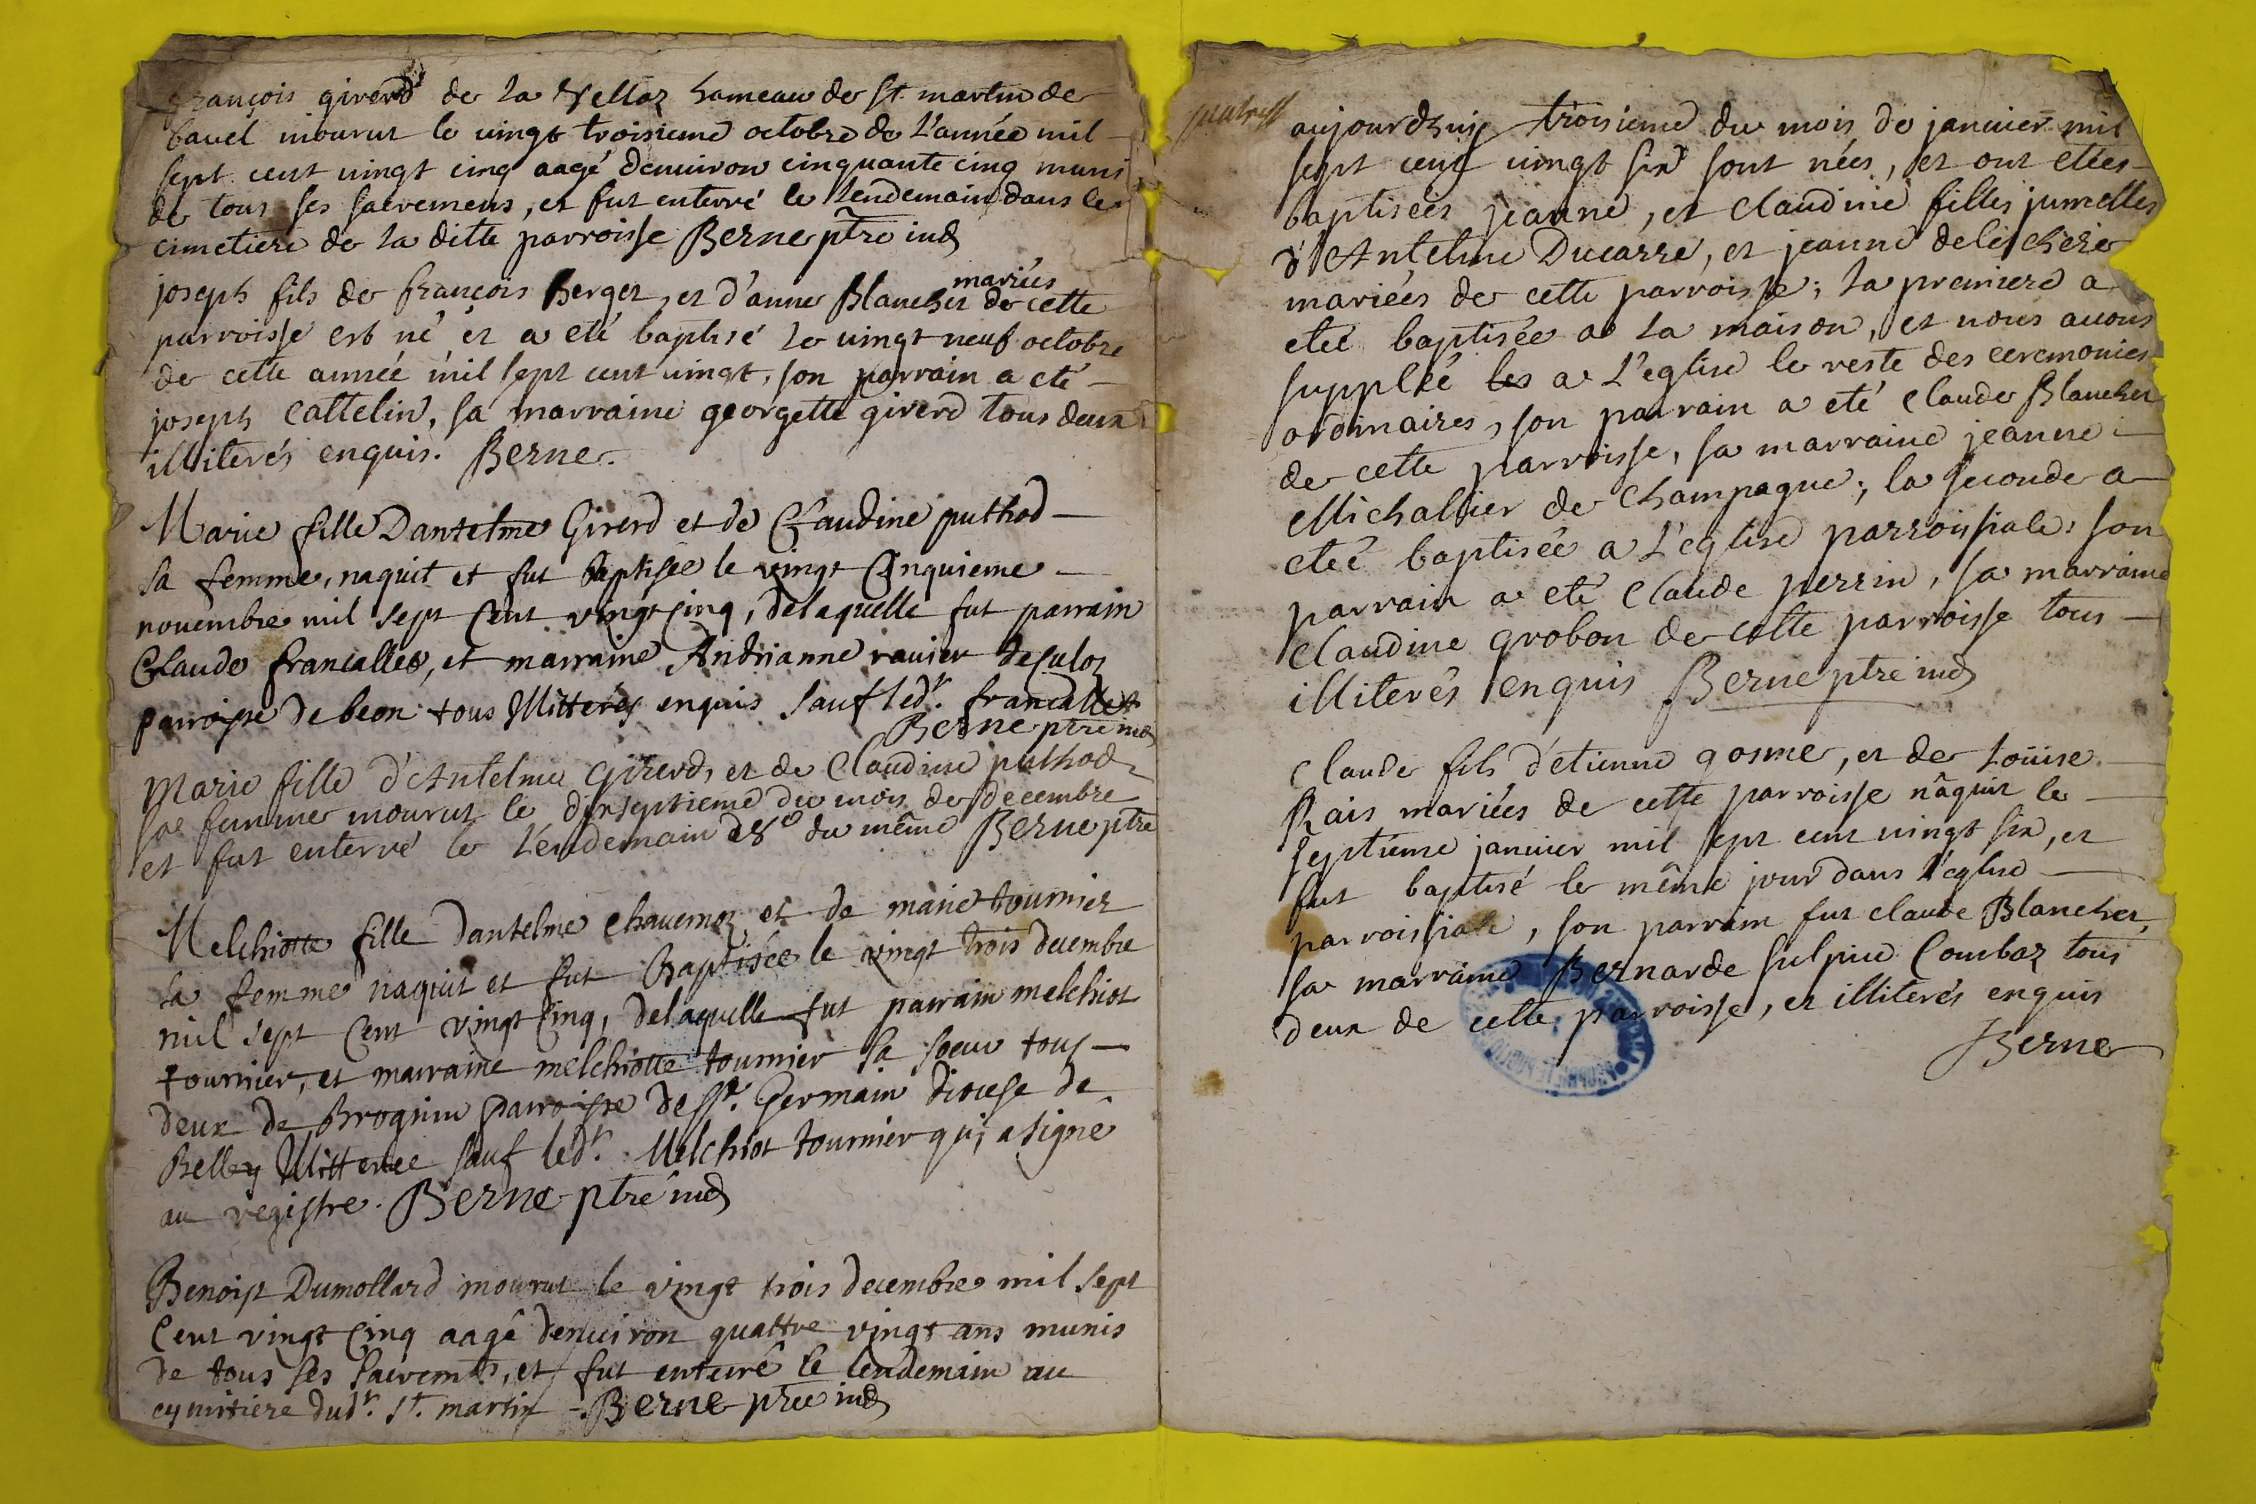 françois girerd de la Vellaz hameau de St. martin de
bavel mourut le vingt troisieme octobre de L'année mil
sept cent vingt cinq aagé denviron cinquante cinq muni
de tous ses sacremens, et fut enterré le lendemain dans le
cimetiere de la ditte parroisse Berne ptre ind
mariées
joseph fils de françois Berger, et d'anne Blancher de cette
parroisse est né et a eté baptisé le vingt neuf octobre
de cette année mil sept cent vingt, son parrain a eté
joseph Cattelin, sa marraine georgette girerd tous deux
illiterés enquis. Berne.
Marie fille Dantelme Girerd et de Claudine puthod
sa femme, naquit et fut Baptisée le vingt Cinquieme
novembre mil sept Cent vingt Cinq, de laquelle fut parrain
Claude francallet, et marraine Andrianne ravier de Culoz
parroisse de beon tous Illitterés enquis sauf led.t francallet
Berne ptre ind
Marie fille d'Antelme Girerd, et de Claudine puthod
sa femme mourut le dixseptieme du mois de decembre
et fut enterré le lendemain 18e du même Berne ptre
Melchiotte fille Dantelme Chavernoz et de marie tournier
sa femme naquit et fut Baptisée le vingt trois decembre
mil sept Cent vingt Cinq, de laquelle fut parrain melchiot
tournier, et marraine melchiotte tournier sa soeur tous
deux de Brognin parroisse de St. Germain diocese de
Belley Illitterée sauf led.t Melchiot tournier qui a signe
au registre. Berne ptre ind
Benoist Dumollard mourut le vingt trois decembre mil sept
Cent vingt Cinq aagé denviron quattre vingt ans munis
de tous ses sacremts, et fut enterré le lendemain au
cymitiere dud.t St. martin - Berne ptre ind
aujourdhuy troisieme du mois de janvier mil
sept cent vingt six sont nées, et ont etées
baptisées jeanne, et Claudine filles jumelles
d'Antelme Ducarre, et jeanne delecherе
mariées de cette parroisse; la premiere a
eteé baptisée a la maison, et nous avons
suppleé les a L'eglise le reste des ceremonies
ordinaires, son parrain a eté Claude Blancher
de cette parroisse, sa marraine jeanne
Michallier de Champagne; la seconde a
eteé baptisée a L'eglise parroissiale, son
parrain a eté Claude perrin, sa marraine
Claudine grobon de cette parroisse tous
illiterés enquis Berne ptre ind
Claude fils d'etienne gosme, et de Loüise
Rais mariées de cette parroisse nâquit le
septieme janvier mil sept cent vingt six, et
fut baptisé le même jour dans l'eglise
parroissiale, son parrain fut claude Blancher,
sa marraine Bernarde sulpice Combaz tous
deux de cette parroisse, et illiterés enquis
Berne